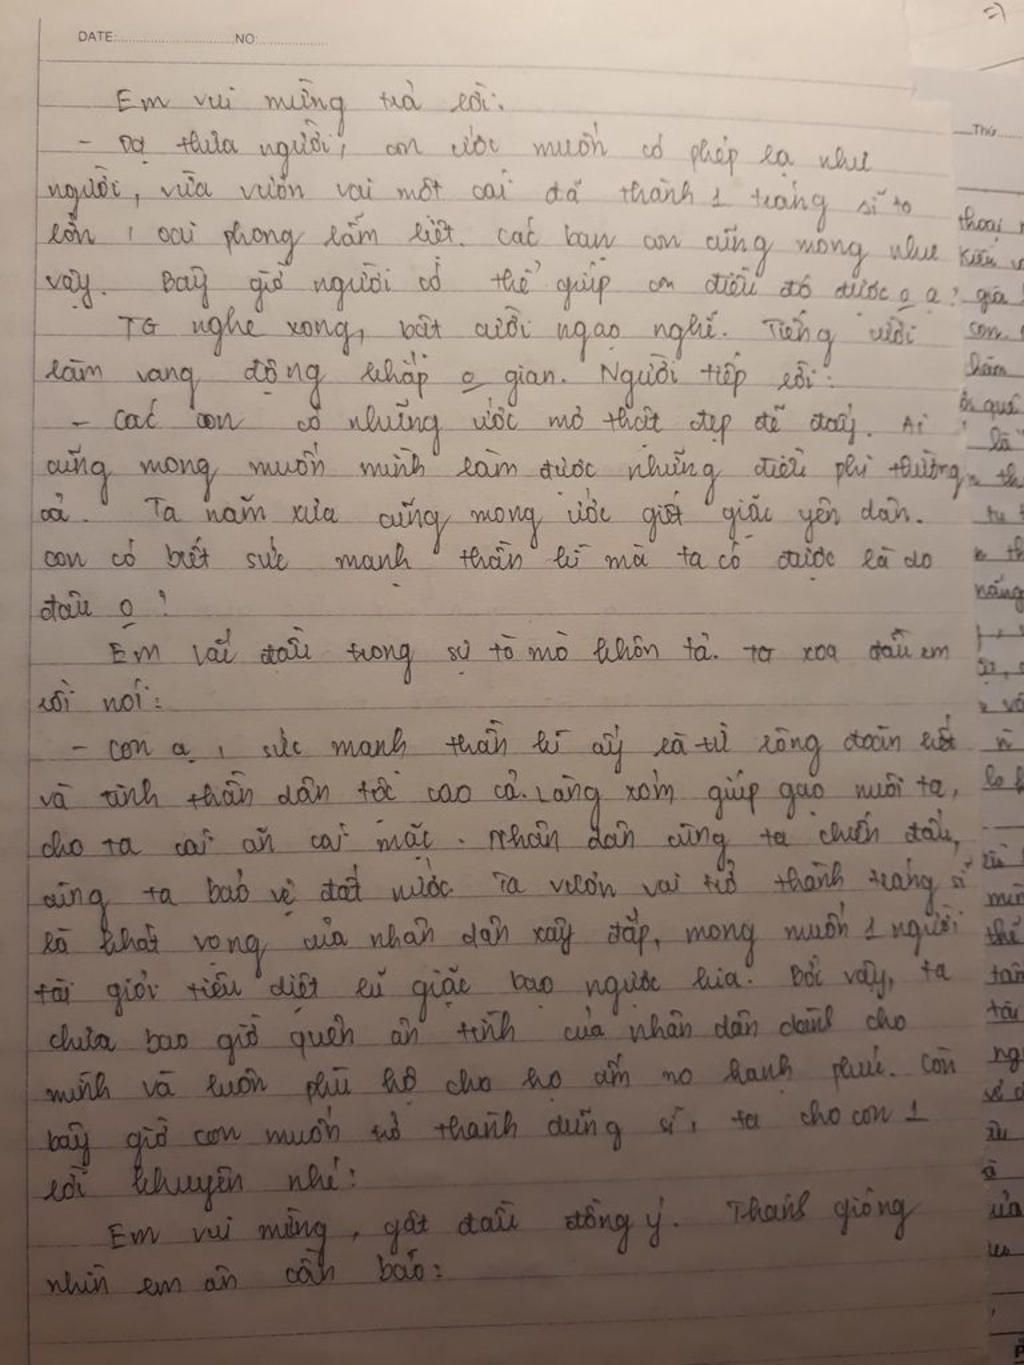 DATE: NO:
Em vui mừng trả lời:
- Dạ thưa người, con ước muốn có phép lạ như
người, vừa vươn vai một cái đã thành 1 tráng sĩ to
lớn, oai phong lẫm liệt. Các bạn con cũng mong như
vậy. Bây giờ người có thể giúp con điều đó được o ạ?
TG nghe xong, bật cười ngạo nghễ. Tiếng cười
làm vang động khắp o gian. Người tiếp lời:
- Các con có những ước mơ thật đẹp đẽ đấy. Ai
cũng mong muốn mình làm được những điều phi thường
cả. Ta năm xưa cũng mong ước giết giặc yên dân.
Con có biết sức mạnh thần kì mà ta có được là do
đâu o?
Em lắc đầu trong sự tò mò khôn tả. TG xoa đầu em
rồi nói:
- Con ạ, sức mạnh thần kì ấy là từ lòng đoàn kết
và tinh thần dân tộc cao cả. Làng xóm giúp gạo nuôi ta,
cho ta cái ăn cái mặc. Nhân dân cùng ta chiến đấu,
cùng ta bảo vệ đất nước. Ta vươn vai trở thành tráng sĩ
là khát vọng của nhân dân xây đắp, mong muốn 1 người
tài giỏi tiêu diệt lũ giặc bạo ngược kia. Bởi vậy, ta
chưa bao giờ quên ân tình của nhân dân dành cho
mình và luôn phù hộ cho họ ấm no hạnh phúc. Còn
bây giờ con muốn trở thành dũng sĩ, ta cho con 1
lời khuyên nhé:
Em vui mừng, gật đầu đồng ý. Thánh Gióng
nhìn em ân cần bảo:
Thứ
thoại
kiểu
giá
con
hăm
quê
là
nắng
ng
của